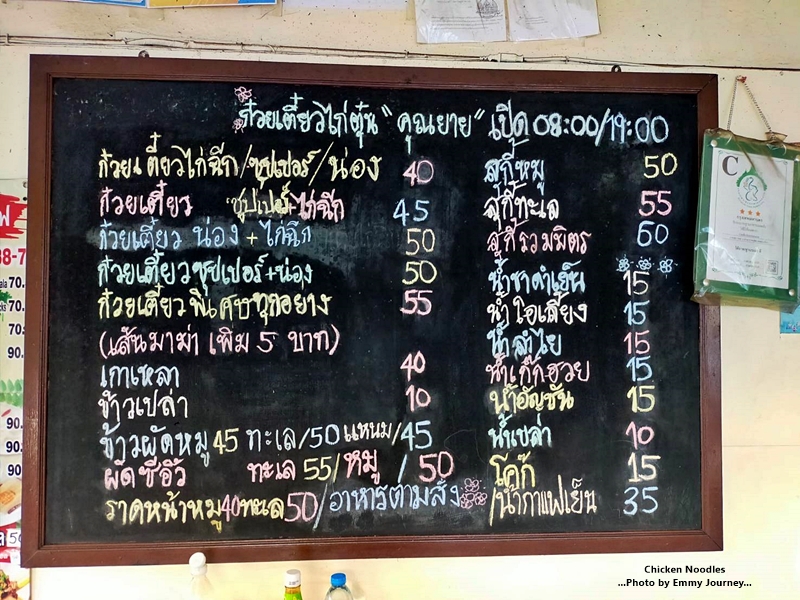 ก๋วยเตี๋ยวไก่ตุ๋น "คุณยาย" เปิด 08:00/19:00
ก๋วยเตี๋ยวไก่ฉีก/ซุปเปอร์/น่อง 40
ก๋วยเตี๋ยว ซุปเปอร์+ไก่ฉีก 45
ก๋วยเตี๋ยว น่อง + ไก่ฉีก 50
ก๋วยเตี๋ยวซุปเปอร์+น่อง 50
ก๋วยเตี๋ยวพิเศษทุกอย่าง 55
(เส้นมาม่า เพิ่ม 5 บาท)
เกาเหลา 40
ข้าวเปล่า 10
ข้าวผัดหมู 45 ทะเล/50 แหนม/45
ผัดซีอิ้ว ทะเล 55/หมู / 50
ราดหน้าหมู40ทะเล50/อาหารตามสั่ง
สุกี้หมู 50
สุกี้ทะเล 55
สุกี้รวมมิตร 60
น้ำชาดำเย็น 15
น้ำโอเลี้ยง 15
น้ำลำไย 15
น้ำเก๊กฮวย 15
น้ำอัญชัน 15
น้ำเปล่า 10
โค๊ก 15
/น้ำกาแฟเย็น 35
C
70.
70.
90.
90.
90.
90.
Chicken Noodles
...Photo by Emmy Journey...